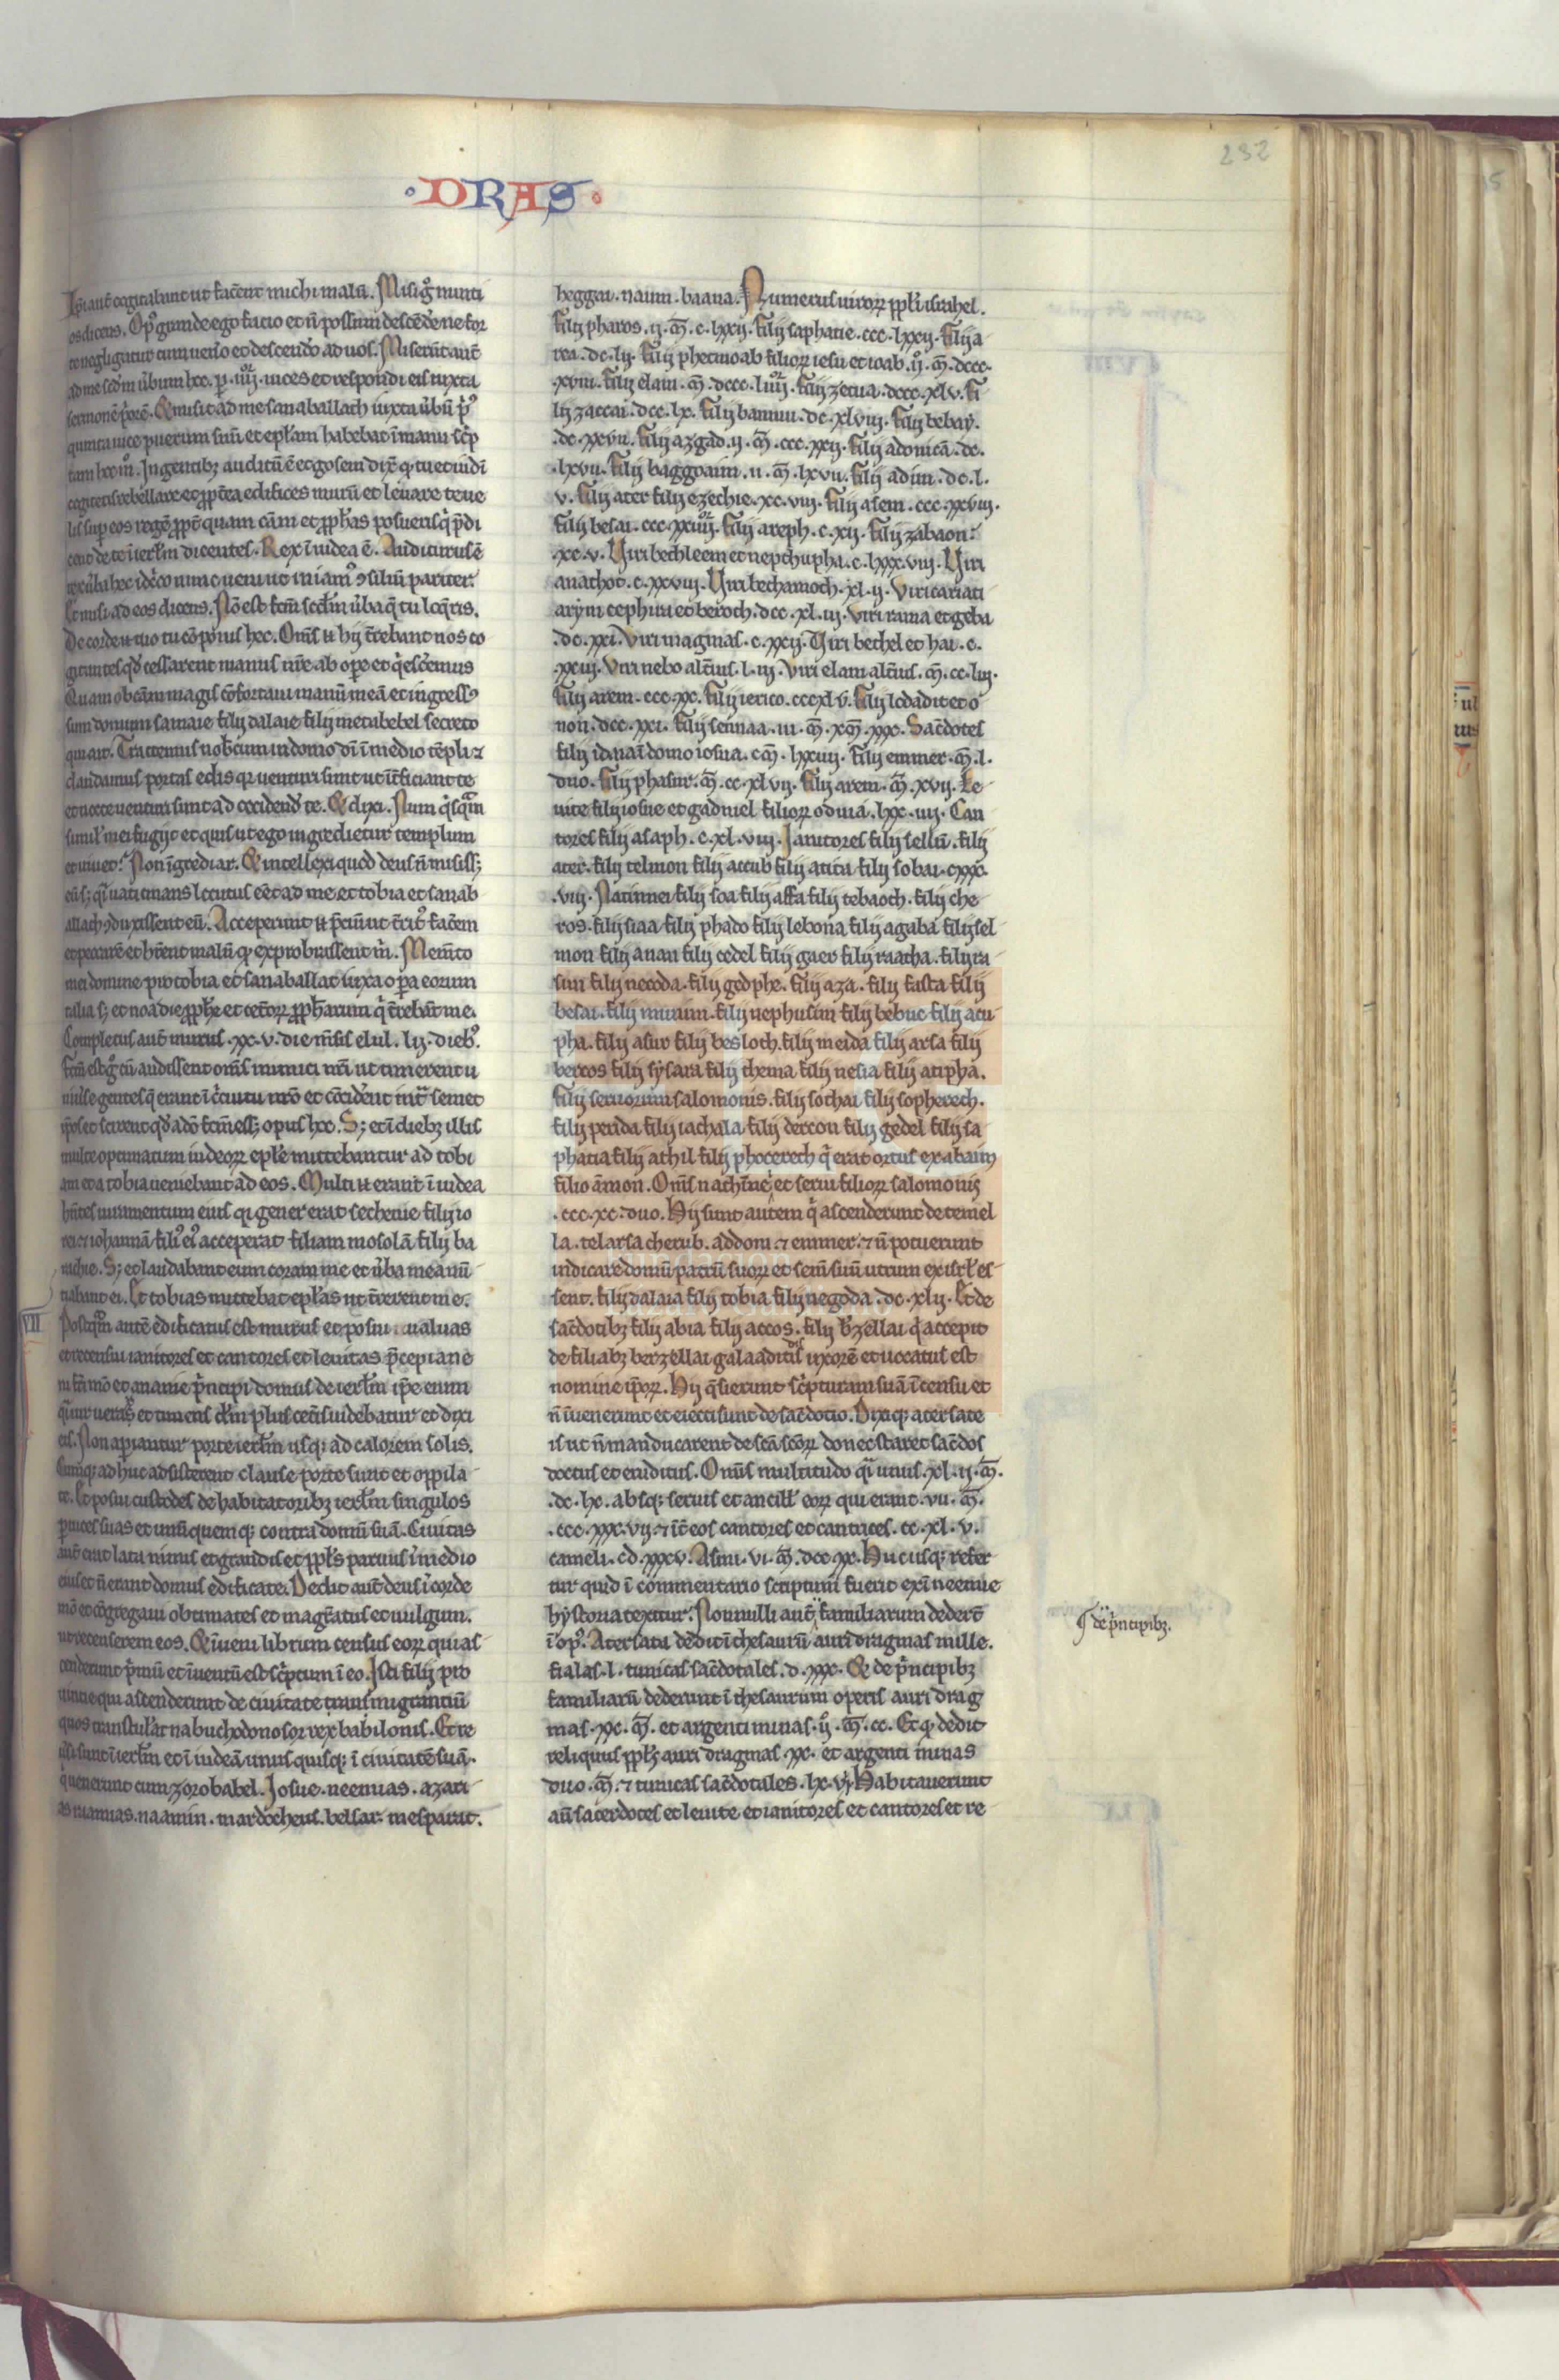 232
· DRAS ·
Ipsi aut̄ cogitabant ut fac̄ent michi malū. Misi gͦ nunti
os dicens. Opꝰ grande ego facio et n̄ possum descēdẻ ne for
te negligatur cum uen̉o et descendo̓ ad uos. Miserūt aut̄
ad me sedm̄ u̓bum hoc. p. iiijor. uices et respondi eis iuxta
sermonē pͥorē. Et misit ad me sanaballath iuxta u̓bū pͥꝰ
quinta uice puerum suū et epl̄am habebat ī manu scͥp
tam hoc mͦ. In gentibꝫ auditū ē et gosem dix̄ qͥ tu et iudi
cogitetis rebellare et ꝓpt̄ea edifices murū et leuare te ue
lis sup eos regē ꝓpt̄ quam cām et ꝓph̄as posueris qͥ p̄di
cent de te ī ierl̄m dicentes. Rex ī iudea ē. Auditurus ē
rex u̓ba hec idcͦo nunc ueni ut iniamꝰ ꝯsiliū pariter.
Et misi ad eos dicens. Nō est fcm̄ scd̄m u̓ba q̄ tu loq̄ris.
De corde n̄ tuo tu cōponis hec. Om̄s n̄ hij t̄rebant nos co
gitantes qd̓ cessarent manus nr̄e ab oꝑe et qͥesc̓emus
Quam ob cām magis cōfortaui manū meā et ingressꝰ
sum domum samaie filij dalaie filij metabebel secreto
qui ait. Tractemus nob̄cum in domo dī ī medio tēpli ⁊
claudamus portas edis qr uenturi sunt ut īt̓ficiant te
et nocte uenturi sunt ad occidend̓ te. Et dixi. Num qͥsqͣm
simil̓ mei fugit et quis ut ego ingredietur templum
et uiuet? Non īgrediar. Et intellexi quod deus n̄ misissꝫ
eū sꝫ qͣi uaticinans locutus eēt ad me et tobia et sanab
allath ꝯduxissent eū. Acceperunt n̄ p̄ciū ut t̄ritꝰ fac̄em
et peccarē et hr̄ent malū qͦ exprobrassent m̄. Mem̄to
mei domine pro tobia et sanaballat iuxta oꝑa eorum
talia sꝫ et noadie ꝓph̄e et cet̓orꝝ ꝓph̄arum qͥ t̄rebāt me.
Completus aut̄ murus. xx. v. die m̄sis elul. lij. diebꝰ.
fcm̄ est gͦ cū audissent om̄s inimici nr̄i ut timerent u
niu̓se gentes q̄ erant ī cͥcuitu nr̄o et cōcid̓ent int̄ semet
ip̄os et scirent qd̓ a dō fcm̄ essꝫ opus hoc. Sꝫ et ī diebꝫ illis
multe optimatum iudeorꝝ epl̄e mittebantur ad tobi
am et a tobia ueniebant ad eos. Multi n̄ erant ī iudea
hn̄tes iuramentum eius qͥ gener erat sechenie filij io
rei ⁊ iohannā filiꝰ eiꝰ acceperat filiam mosolā filij ba
rachie. Sꝫ et laudabant eum coram me et u̓ba mea nū
tiabant ei. Et tobias mittebat epl̄as ut t̄rerent me.
VII
Postqͣm autē edificatus est murus et posui ualuas
et recensui ianitores et cantores et leuitas p̄cepi ane
ni fr̄i mō et ananie pͥncipi domus de ierl̄m ip̄e enim
qͣi uir uerax et timens dm̄ plus cet̓is uidebatur et dixi
eis. Non apiantur porte ierl̄m usqꝫ ad calorem solis.
Cumqꝫ adhuc adsisterent clause porte sunt et oppila
te. Et posui custodes de habitatoribꝫ ierl̄m singulos
ꝑ uices suas et unūquemqꝫ contra domū suā. Ciuitas
aut̄ erat lata nimis et grandis et ppl̄s paruus ī medio
eius et n̄ erant domus edificate. Dedit aut̄ deus ī corde
mō et cōgregaui obtimates et magr̄atus et uulgum.
ut recenserem eos. Et īueni librum census eorꝝ qui as
cenderant pͥmū et īuentū est scͥptum ī eo. Isti filij pro
uintie qui ascenderunt de ciuitate transmigrantiū
quos transtul̓at nabuchodonosor rex babilonis. Et re
u̓si sunt ī ierl̄m et ī iudeā unusquisqꝫ ī ciuitatē suā.
qͥ uenerunt cum zorobabel. Iosue. neemias. azari
as raamias. naamin. mardocheus. belsar. mesparat.
beggai. naum. baana. Numerus uirorꝝ ppl̄i israhel.
filij pharos. ij. m̄. c. lxxij. filij saphatie. ccc. lxxij. filij a
rea. dc. lij. filij phetmoab filiorꝝ iesu et ioab. ij. m̄. dccc.
xviii. filij elam. m̄. dccc. liiijor. filij zetua. dccc. xlv. fi
lij zaccai. dcc. lx. filij bannui. dc. xlviij. filij bebay.
dc. xxvii. filij azgad. ij. m̄. ccc. xxij. filij adonicā. dc.
lxvii. filij baggoaim. ii. m̄. lxvii. filij adim. dc. l.
v. filij ater filij ezechie. xc. viij. filij asem. ccc. xxviij.
filij besai. ccc. xxiiijor. filij areph. c. xij. filij zabaon.
xc. v. Viri bethleem et nepthupha. c. lxxx. viij. Viri
anathot. c. xxviij. Viri bethamoth. xl. ij. Viri cariati
arym cephira et beroth. dcc. xl. iij. Viri rama et geba
dc. xxi. Viri magmas. c. xxij. Viri bethel et hai. c.
xxiij. Viri nebo alt̓ius. l. ij. Viri elam alt̓ius. m̄. cc. liij.
filij arem. ccc. xx. filij ierico. cccxl v. filij lodadit et o
non. dcc. xxi. filij sennaa. iii. m̄. xm̄. xxx. Sac̄dotes
filij idaia ī domo iosua. cm̄. lxxiij. filij emmer. m̄. l.
duo. filij phasur. m̄. cc. xlvij. filij arem. m̄. xvij. Le
uite filij iosue et gadmiel filiorꝝ oduiā. lxx. iiij. Can
tores filij asaph. c. xl. viij. Ianitores filij sellū. filij
ater. filij telmon filij accub filij atita filij sobai. cxxx.
viij. Natinnei filij soa filij assa filij tebaoth. filij che
ros. filij siaa filij phado filij lebona filij agaba filij sel
mon filij anan filij cedel filij gaer filij raatha. filij ra
sim filij necoda. filij gedphe. filij aza. filij fasta filij
besai. filij mumim. filij nephusim filij bebuc filij acu
pha. filij asur filij besloth. filij meida filij arsa filij
bercos filij sysara filij thema filij nesia filij atipha.
filij seruorum salomonis. filij sothai filij sopherech.
filij perida filij iachala filij dercon filij gedel filij sa
phatia filij athil filij phocerech qͥ erat ortus ex abaim
filio āmon. Om̄s nathīnei et serui filiorꝝ salomonis
ccc. xc. duo. Hij sunt autem qͥ ascenderunt de temel
la. telarsa cherub. addom ⁊ emmer. ⁊ n̄ potuerunt
indicare domū patrū suorꝝ et sem̄ suū utrum ex isrl̓ es
sent. filij dalaia filij tobia filij negoda. dc. xlij. Et de
sac̄dotibꝫ filij abia filij accos. filij b̓zellai qͥ accepit
de filiabꝫ berzellai galaaditidis uxorē et uocatus est
nomine ip̄orꝝ. Hij q̄sierunt scͥpturam suā ī censu et
n̄ īuenerunt et eiecti sunt de sac̄dotio. Dixitqꝫ atersate
is ut n̄ manducarent de sc̄a sc̄orꝝ donec staret sac̄dos
doctus et eruditus. Omīs multitudo qͣi unus. xl. ij. m̄.
dc. lx. absqꝫ seruis et ancill̓ eorꝝ qui erant. vii. m̄.
ccc. xxx. vij ⁊ īt̓ eos cantores et cantrices. cc. xl. v.
cameli. cd. xxxv. Asini. vi. m̄. dcc. xx. Hucusqꝫ refer
tur quid ī commentario scriptum fuerit exī neemie
hystoria texitur. Nonnulli aut̄ familiarum dedert̄
ī opꝰ. Atersata dedit ī thesaurū auri dragmas mille.
fialas. l. tunicas sac̄dotales. d. xxx. Et de pͥncipibꝫ
familiarū dederunt ī thesaurum operis auri drag
mas. xx. m̄. et argenti minas. ij. m̄. cc. Et qͦ dedit
reliquus ppl̓s auri dragmas. xx. et argenti minas
duo. m̄. ⁊ tunicas sac̄dotales. lx. vij. Habitauerunt
aū sacerdotes et leuite et ianitores et cantores et re
de pͥncipibꝫ.